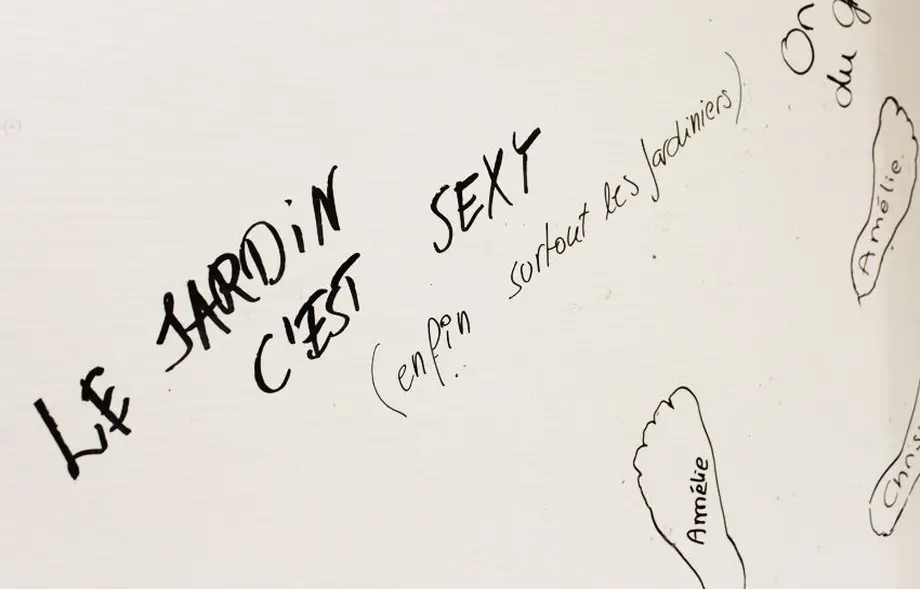 LE JARDIN
C'EST SEXY
(enfin surtout les Jardiniers)
On
du
Amélie
Amélie